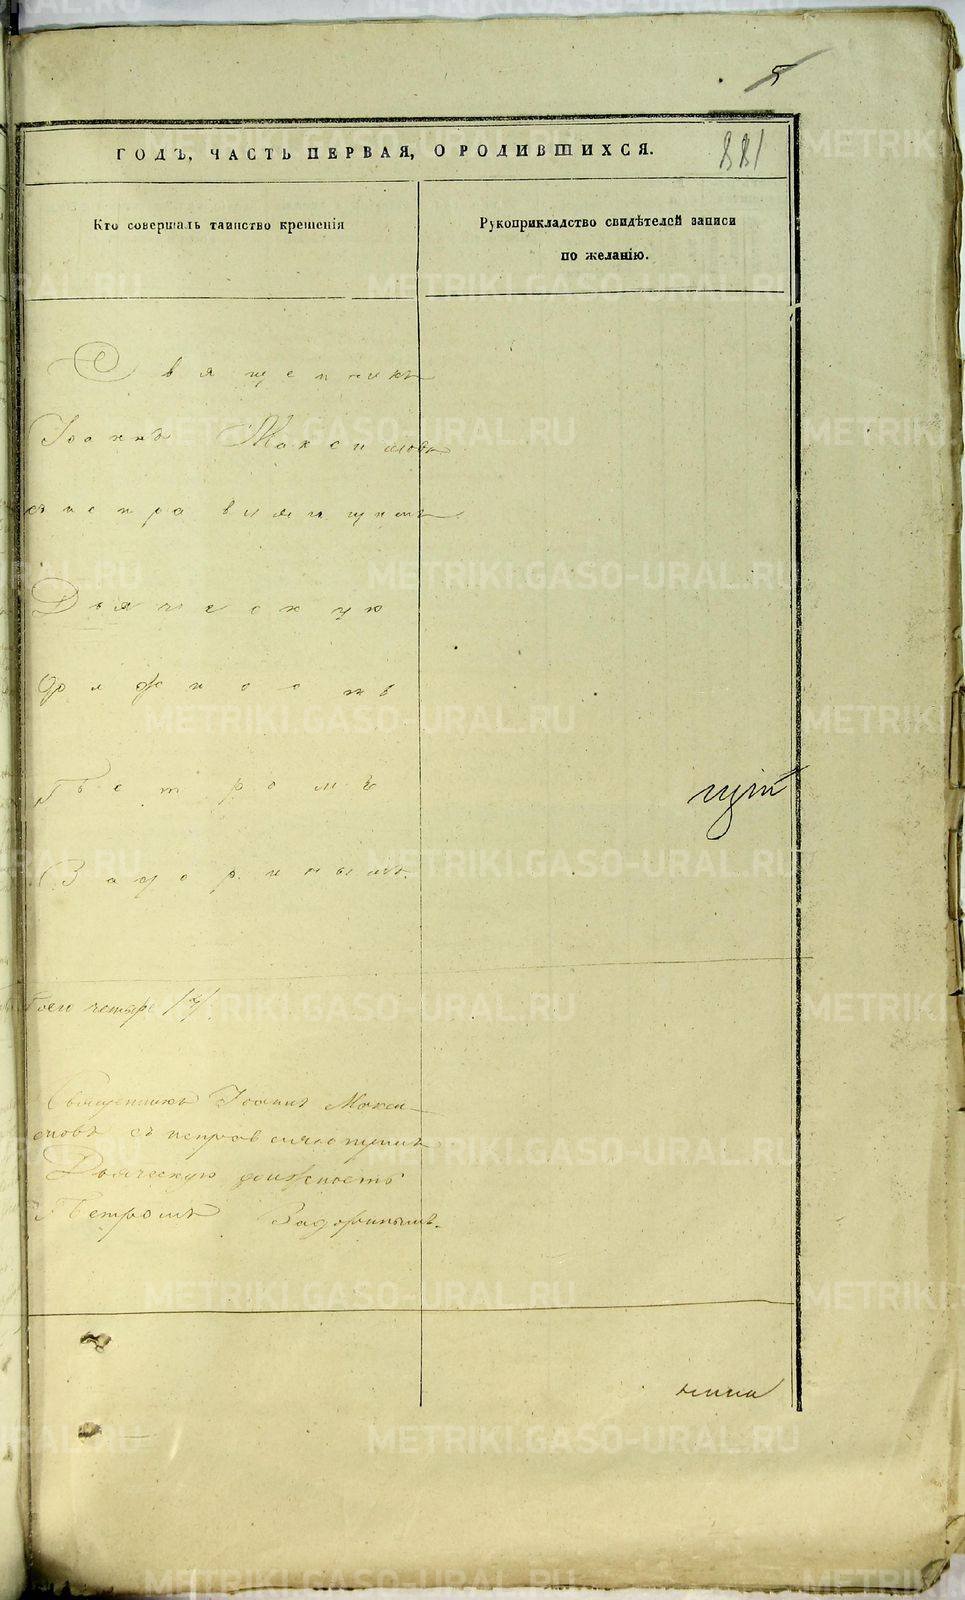 5
ГОДЪ, ЧАСТЬ ПЕРВАЯ, О РОДИВШИХСЯ.
881
Кто совершалъ таинство крещенія
Рукоприкладство свидѣтелей записи
по желанію.
Священникъ
Іоаннъ Максимовъ
съ исправляющимъ
Дьяческую
должность
Петромъ
Задоринымъ.
щій
Всего четыре /4/
Священникъ Іоаннъ Макси-
мовъ съ исправляющимъ
Дьяческую должность
Петромъ Задоринымъ.
METRIKI.GASO-URAL.RU